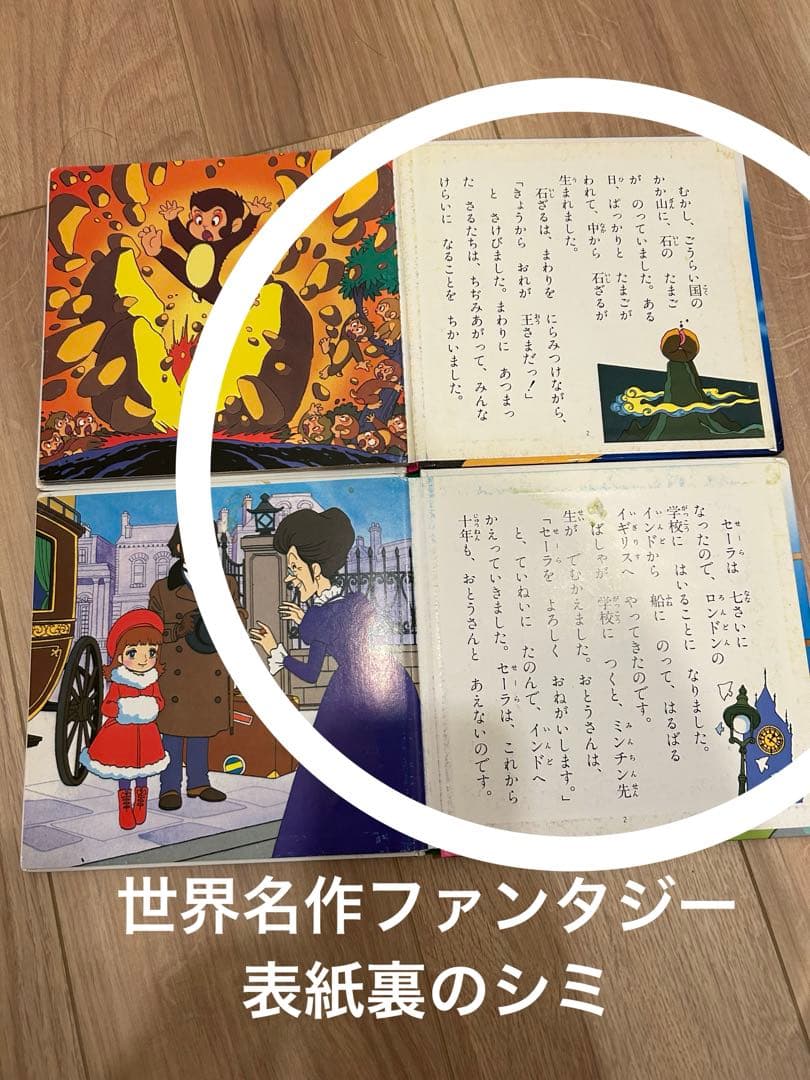 むかし、ごうらい国の
かか山に、石の たまご
が のっていました。ある
日、ぱっかりと たまごが
われて、中から 石ざるが
生まれました。
石ざるは、まわりを にらみつけながら、
「きょうから おれが 王さまだっ!」
と さけびました。まわりに あつまっ
た さるたちは、ちぢみあがって、みんな
けらいに なることを ちかいました。
2
セーラは 七さいに
なったので、ロンドンの
学校に はいることに なりました。
インドから 船に のって、はるばる
イギリスへ やってきたのです。
ばしゃが 学校に つくと、ミンチン先
生が でむかえました。おとうさんは、
「セーラを よろしく おねがいします。」
と、ていねいに たのんで、インドへ
かえっていきました。セーラは、これから
十年も、おとうさんと あえないのです。
2
世界名作ファンタジー
表紙裏のシミ